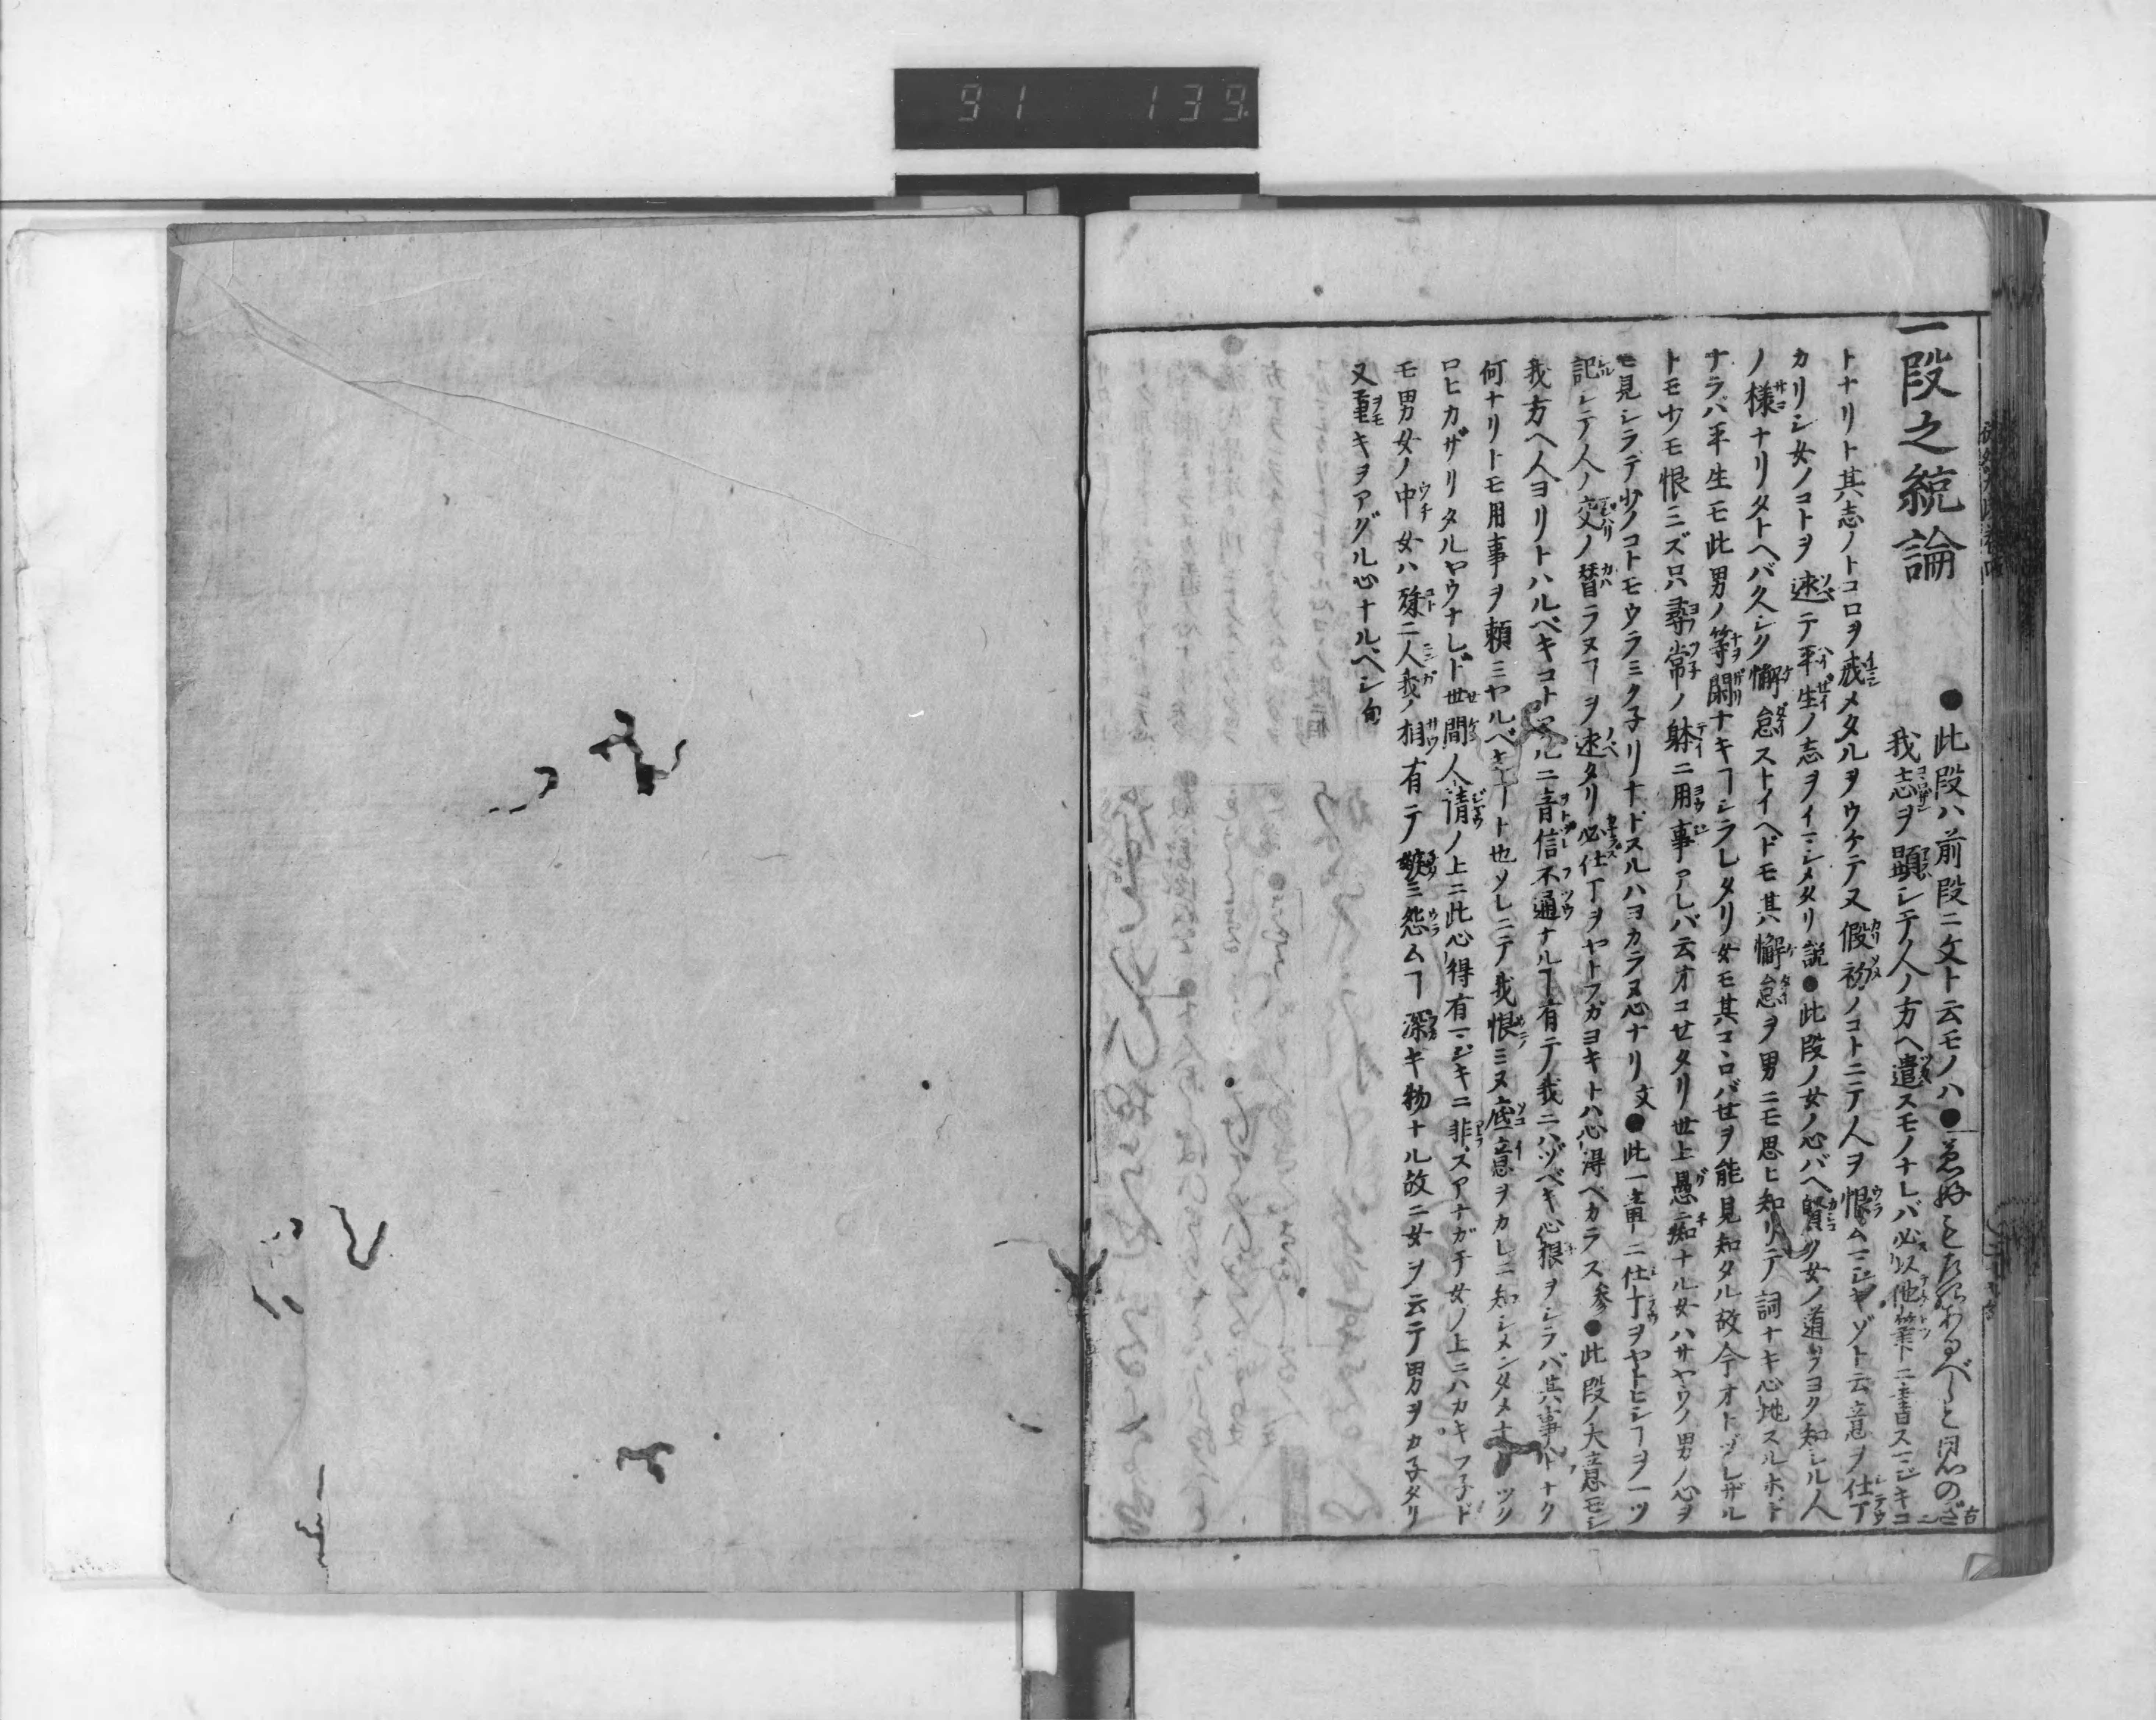 91 139
一段之統論
●此段ハ前段ニ文ト云モノハ●
我志ヲ顕シテ人ノ方ヘ遣スモノナレバ必以他筆下ニ書スマジキコ
トナリト其志ノトコロヲ戒メタルヲウケテ又假初ノコトニテノ人ヲ恨ムマジキゾト云意ヲ仕丁
カリシ女ノコトヲ述テ平生ノ志ヲイマシメタリ説●此段ノ女ノ心バヘ賢ク女ノ道ヲヨク知シル人
ノ様ナリタトヘバ久シク懈怠ストイヘドモ其懈怠ヲ男ニモ思ヒ知リテノ詞ナキ心地スルホド
ナラバ平生モ此男ノ等閑ナキヿシラレタリ女モ其コヽロバセヲ能見知タル故今オトヅレザル
トモ少モ恨ミズ只尋常ノ躰ニ用事アレバ云オコセタリ世上愚痴ナル女ハサヤウノ男ノ心ヲ
モ見シラデ少ノコトモウラミクネリナドスルハヨカラヌ心ナリ文●此一章ニ仕丁ヲヤトヒシヿヲノ一ツ
記シテノ人ノ交ノ替ラヌヿヲ述タリ必仕丁ヲヤトフガヨキトハ心得ベカラス参●此段ノ大意モシ
我方ヘ人ヨリトハルベキコトアルニ音信不通ナルヿ有テノ我ニハヅベキ心根ヲシラバ其事ハトナク
何ナリトモ用事ヲ頼ミヤルベキヿト也ソレニテノ我恨ミヌ底意ヲカレニ知シメンタメナリツク
ロヒカザリタルヤウナレド世間人情ノ上ニ此心得有マジキニ非スアナガチ女ノ上ニハカギラ子ド
モ男女ノ中女ハ殊ニ人我ノ相有テノ嫉ミ怨ムヿ深キ物ナル故ニ女ヲ云テ男ヲカ子タリ
又重キヲアグル心ナルベシ句